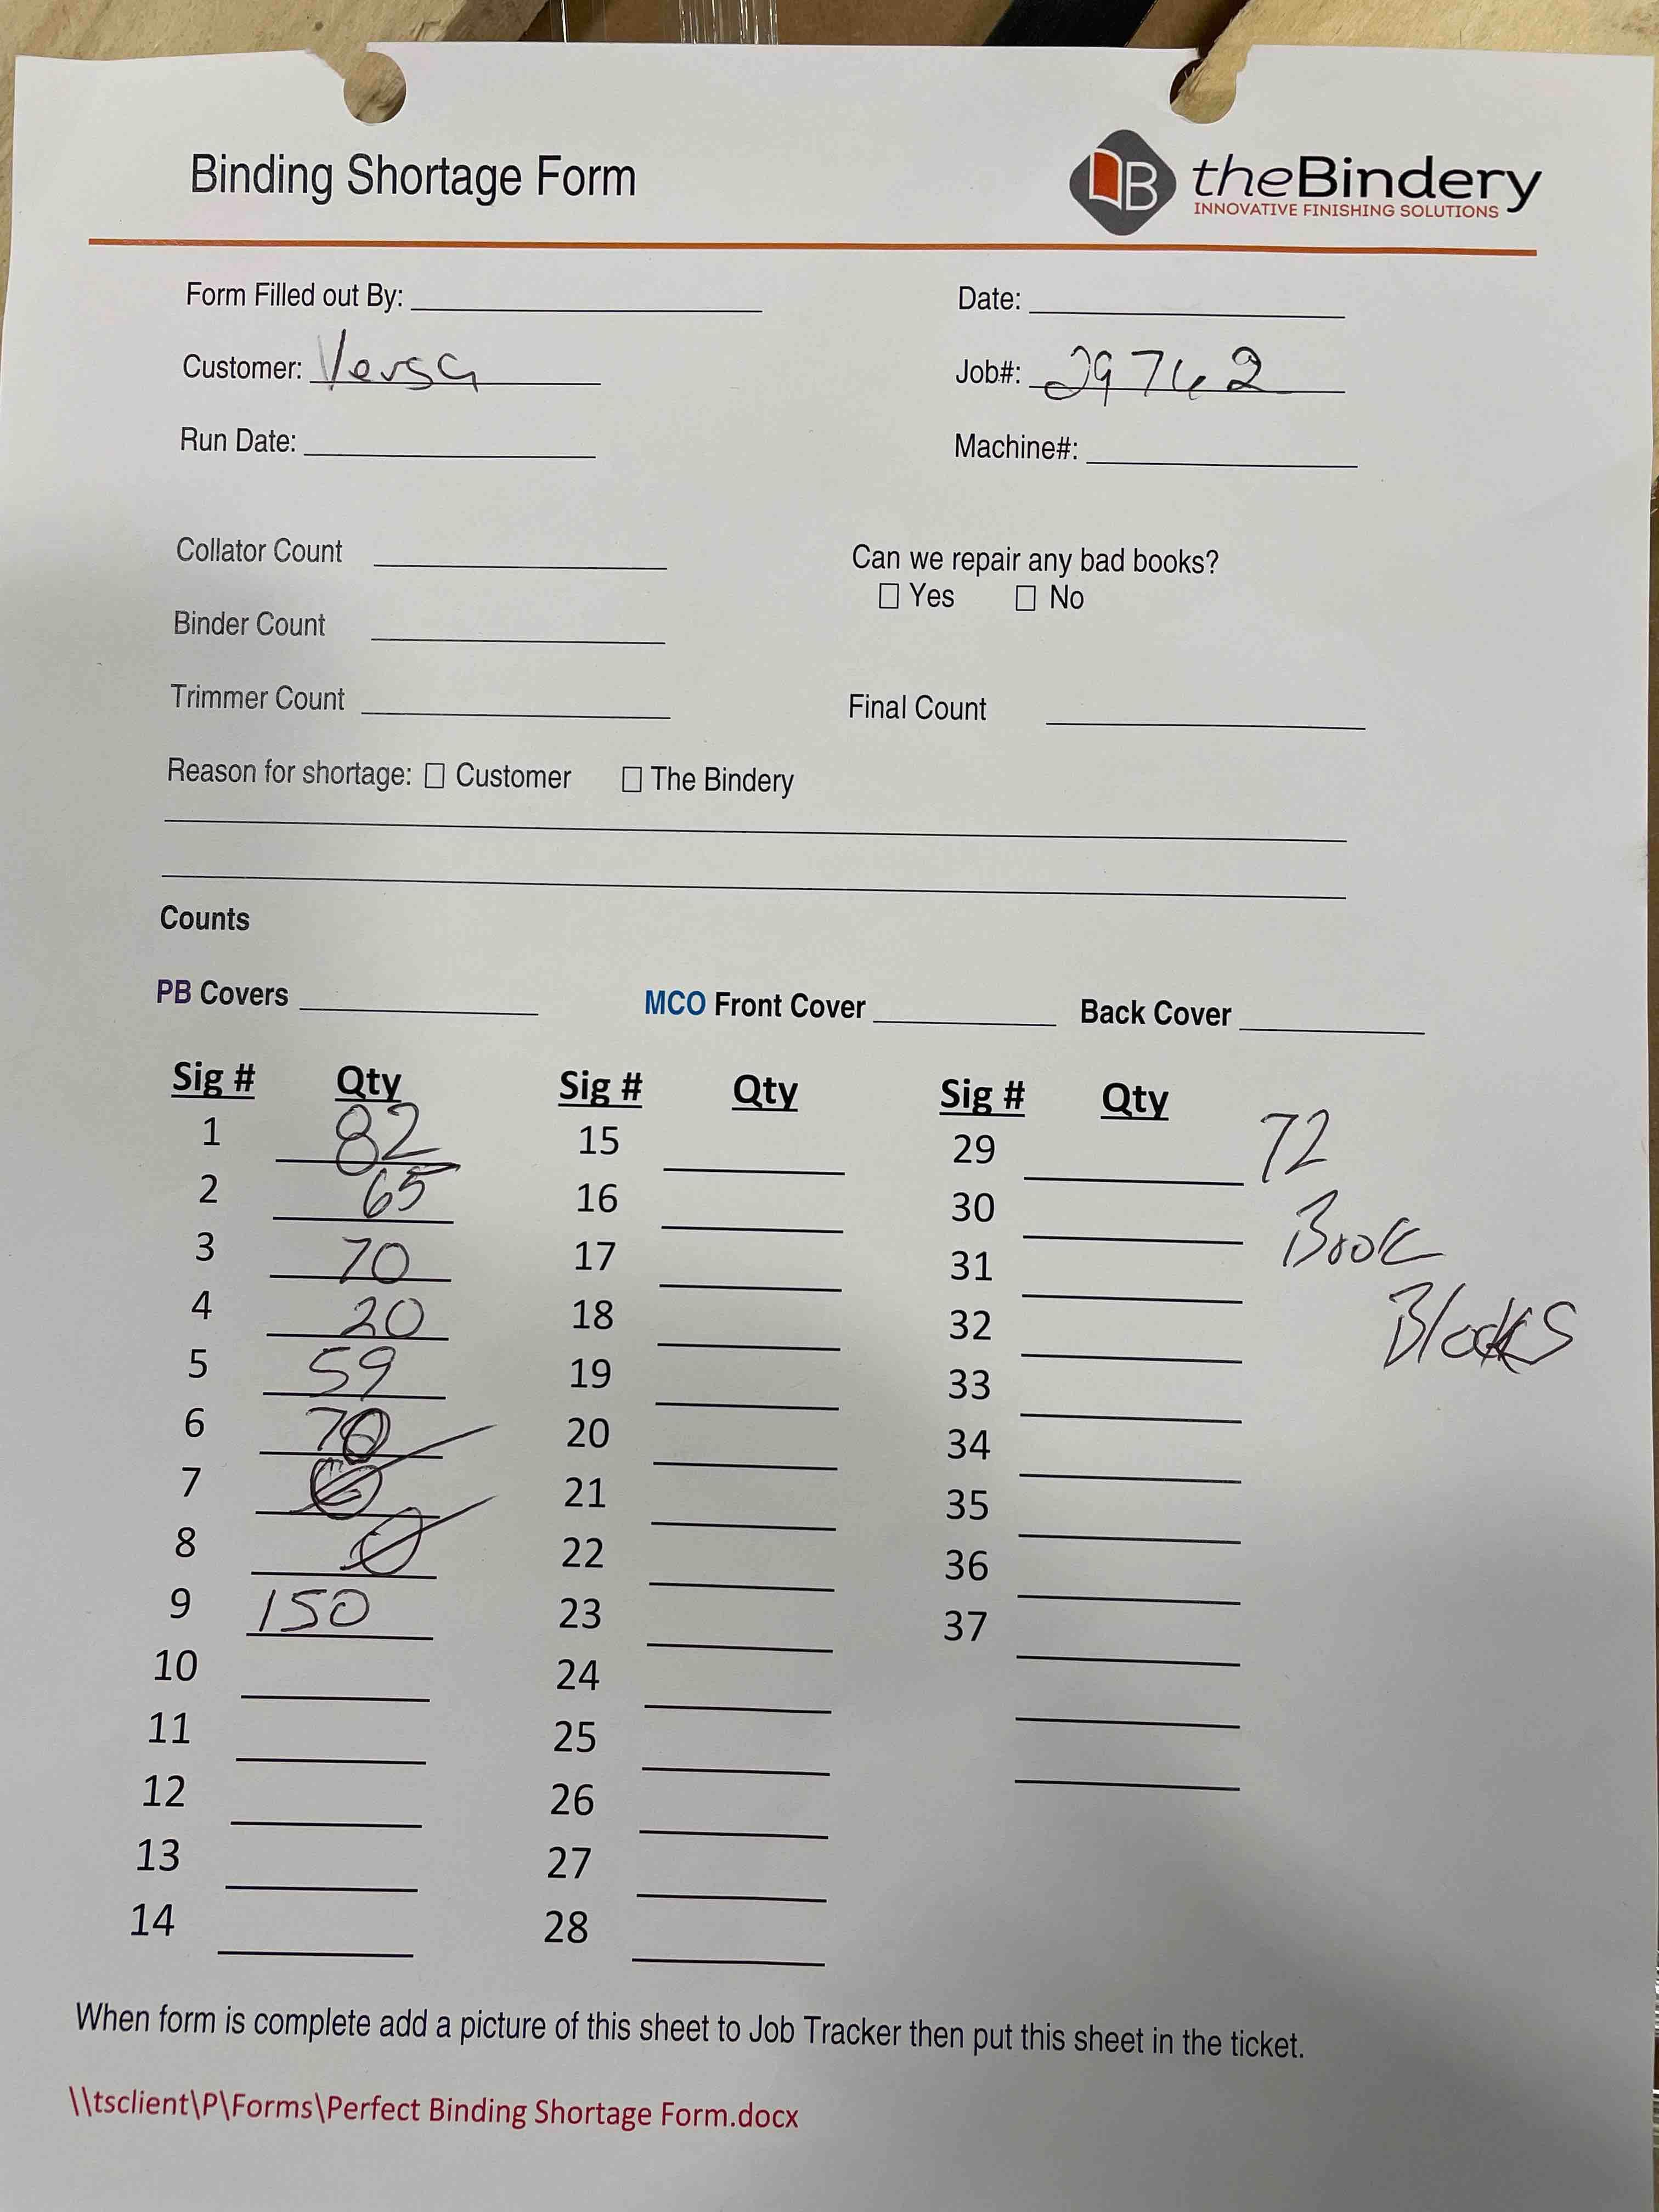 Binding Shortage Form
B theBindery
INNOVATIVE FINISHING SOLUTIONS
Form Filled out By:
Date:
Customer: Versa
Job#: 29762
Run Date:
Machine#:
Collator Count
Can we repair any bad books?
Yes No
Binder Count
Trimmer Count
Final Count
Reason for shortage: Customer The Bindery
Counts
PB Covers MCO Front Cover Back Cover
Sig # Qty Sig # Qty Sig # Qty
1 82 15 29 72
2 65 16 30 Book
3 70 17 31
4 20 18 32 Blocks
5 59 19 33
6 70 20 34
7 21 35
8 0 22 36
9 150 23 37
10 24
11 25
12 26
13 27
14 28
When form is complete add a picture of this sheet to Job Tracker then put this sheet in the ticket.
\\tsclient\P\Forms\Perfect Binding Shortage Form.docx